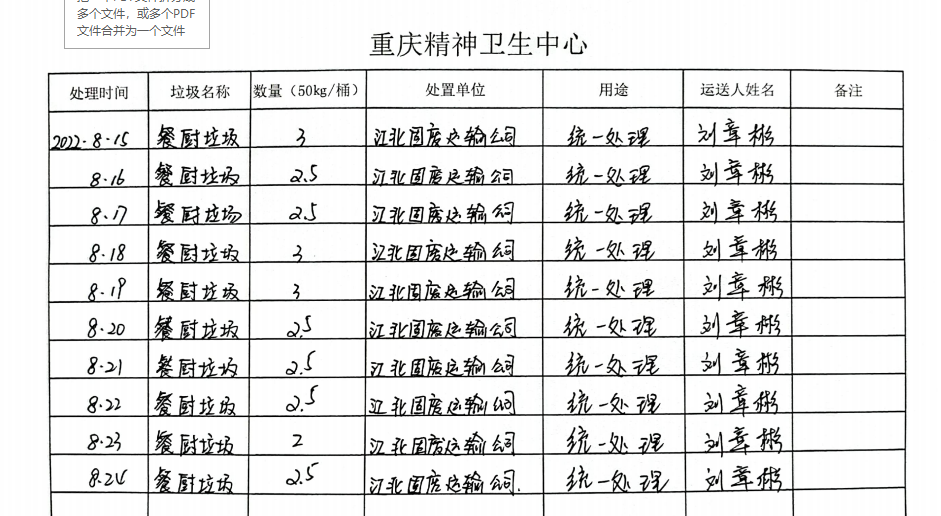 多个文件，或多个PDF
文件合并为一个文件
重庆精神卫生中心
处理时间 垃圾名称 数量（50kg/桶） 处置单位 用途 运送人姓名 备注
2022.8.15 餐厨垃圾 3 江北固废运输公司 统一处理 刘章彬
8.16 餐厨垃圾 2.5 江北固废运输公司 统一处理 刘章彬
8.17 餐厨垃圾 2.5 江北固废运输公司 统一处理 刘章彬
8.18 餐厨垃圾 3 江北固废运输公司 统一处理 刘章彬
8.19 餐厨垃圾 3 江北固废运输公司 统一处理 刘章彬
8.20 餐厨垃圾 2.5 江北固废运输公司 统一处理 刘章彬
8.21 餐厨垃圾 2.5 江北固废运输公司 统一处理 刘章彬
8.22 餐厨垃圾 2.5 江北固废运输公司 统一处理 刘章彬
8.23 餐厨垃圾 2 江北固废运输公司 统一处理 刘章彬
8.24 餐厨垃圾 2.5 江北固废运输公司. 统一处理 刘章彬